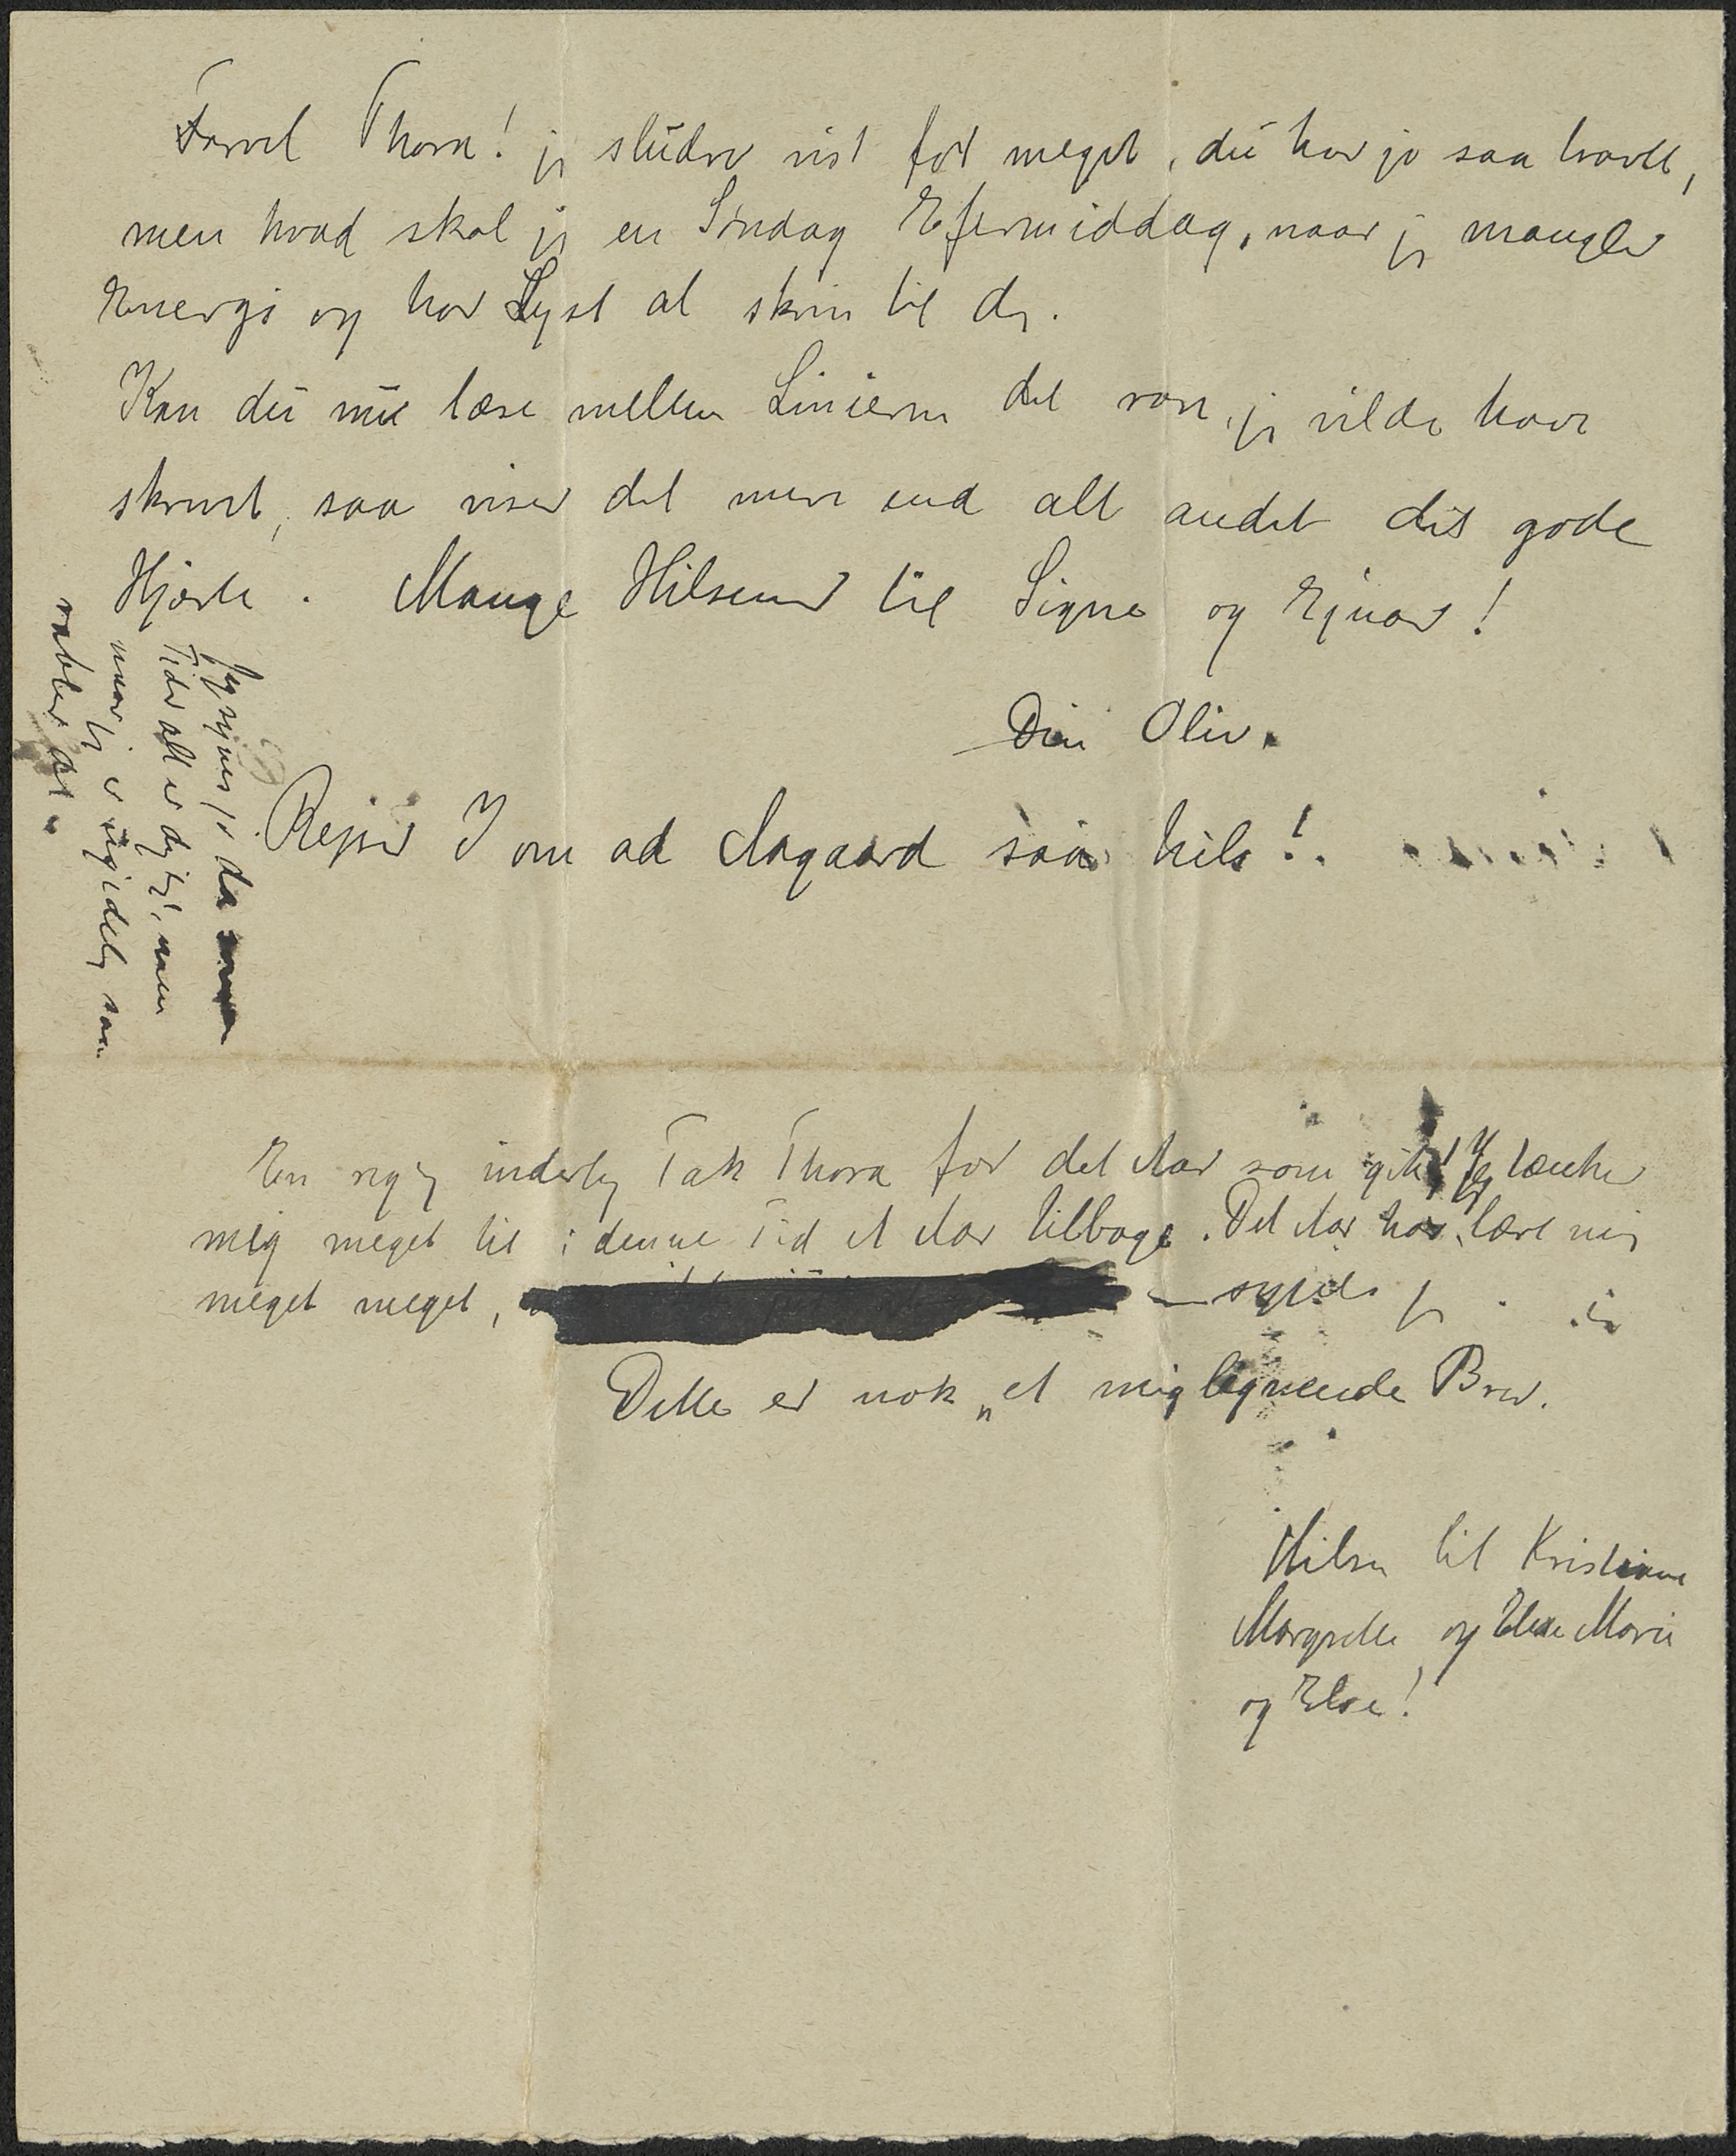 Farvel Thora! jeg sludrer vist for meget, du har jo saa travlt,
men hvad skal jeg en Søndag Eftermiddag, naar jeg mangler
Energi og har Lyst at skrive til dig.
Kan du nu læse mellem Linierne det som jeg vilde have
skrevet, saa viser det mere end alt andet dit gode
Hjærte. Mange Hilsener til Signe og Ejnar!
Din Oliv.
Rejser I om ad Aagaard saa hils!
Jeg synes jo da
Tider alt er dejligt, men
naar jeg er ugidelig saa
rabler det.
En rigtig inderlig Tak Thora for det Aar som gik! Jeg tænker
mig meget til i denne Tid et Aar tilbage. Det Aar har lært mig
meget meget, synes jeg.
Dette er nok „et mig lignende Brev.
Hilsen til Kristiane
Margrethe og Else Marie
og Else!